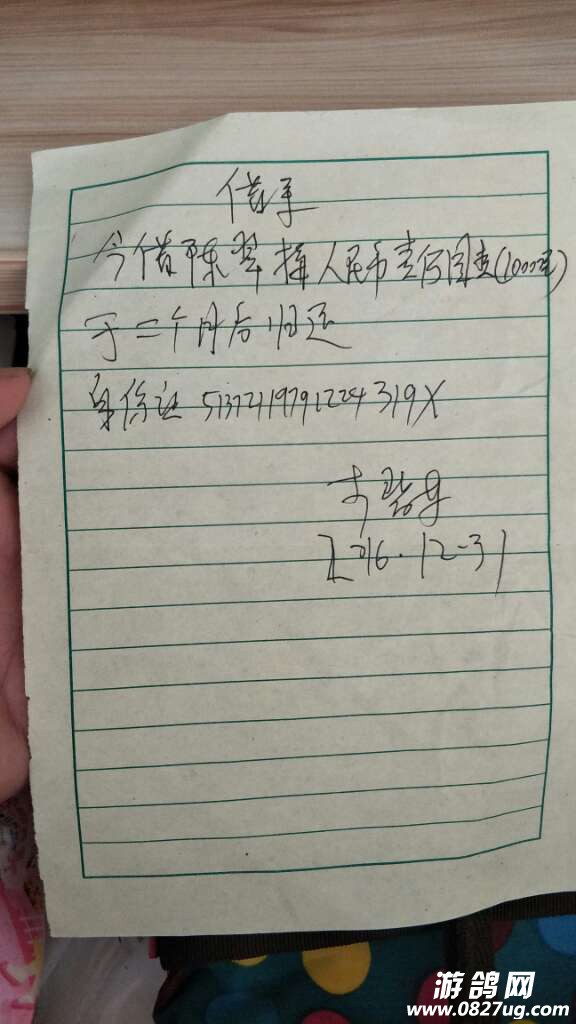 借
今借陈翠 人民币壹仟圆(1000元)
于二个月后归还
身份证 51372119791224319X
李碧
2016.12-31
游鸽网
www.0827ug.com